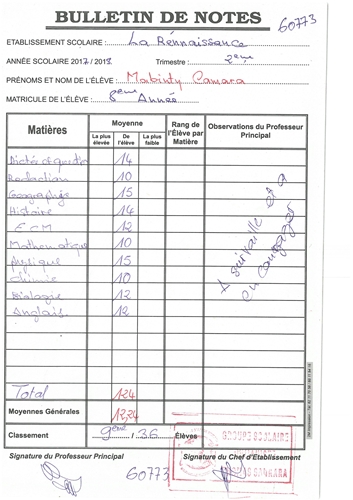 BULLETIN DE NOTES
60773
ETABLISSEMENT SCOLAIRE : La Rénnaissance
ANNÉE SCOLAIRE 2017 / 2018 Trimestre : 2ème
PRÉNOMS ET NOM DE L'ÉLÈVE : Mabinty Camara
MATRICULE DE L'ÉLÈVE : 8ème Année
Matières Moyenne Rang de l'Élève par Matière Observations du Professeur Principal
La plus élevée De l'élève La plus faible
Dictée et question 14
Rédaction 10
Géographie 15
Histoire 14
ECM 12
Mathématique 10
Physique 15
Chimie 10
Biologie 12
Anglais 12
A surveiller et à encourager
Total 124
Moyennes Générales 12,24
Classement 9ème / 36 Élèves
GROUPE SCOLAIRE
Signature du Professeur Principal Signature du Chef d'Établissement
60773